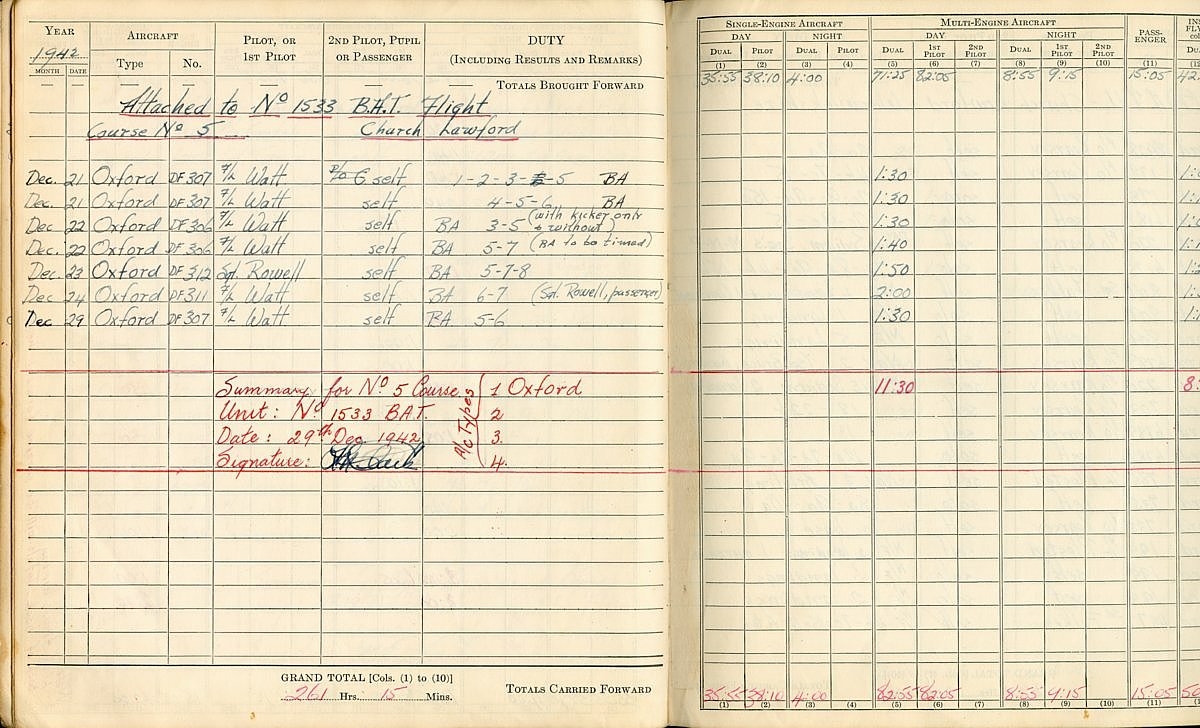 YEAR AIRCRAFT PILOT, OR 1ST PILOT 2ND PILOT, PUPIL OR PASSENGER DUTY (INCLUDING RESULTS AND REMARKS)
1942
MONTH DATE Type No.
— — — — — — TOTALS BROUGHT FORWARD
Attached to No 1533 B.A.T. Flight
Course No 5 Church Lawford
Dec. 21 Oxford DF307 F/L Watt self 1-2-3- -5 BA
Dec. 21 Oxford DF307 F/L Watt self 4-5-6 BA
Dec 22 Oxford DF306 F/L Watt self BA 3-5 (with kicker only & without)
Dec. 22 Oxford DF306 F/L Watt self BA 5-7 (BA to be timed)
Dec. 23 Oxford DF312 Sgt. Rowell self BA 5-7-8
Dec 24 Oxford DF311 F/L Watt self BA 6-7 (Sgt. Rowell, passenger)
Dec 29 Oxford DF307 F/L Watt self BA 5-6
Summary for No. 5 Course 1 Oxford
Unit: No 1533 BAT. 2
Date: 29th Dec. 1942 3.
Signature: 4.
A/c Types
GRAND TOTAL [Cols. (1) to (10)]
261 Hrs. 15 Mins.
TOTALS CARRIED FORWARD
SINGLE-ENGINE AIRCRAFT MULTI-ENGINE AIRCRAFT PASS-ENGER
DAY NIGHT DAY NIGHT
DUAL PILOT DUAL PILOT DUAL 1ST PILOT 2ND PILOT DUAL 1ST PILOT 2ND PILOT
(1) (2) (3) (4) (5) (6) (7) (8) (9) (10) (11)
35:55 38:10 4:00 71:25 82:05 8:55 9:15 15:05
1:30
1:30
1:30
1:40
1:50
2:00
1:30
11:30
35:55 38:10 4:00 82:55 82:05 8:55 9:15 15:05
(1) (2) (3) (4) (5) (6) (7) (8) (9) (10) (11)